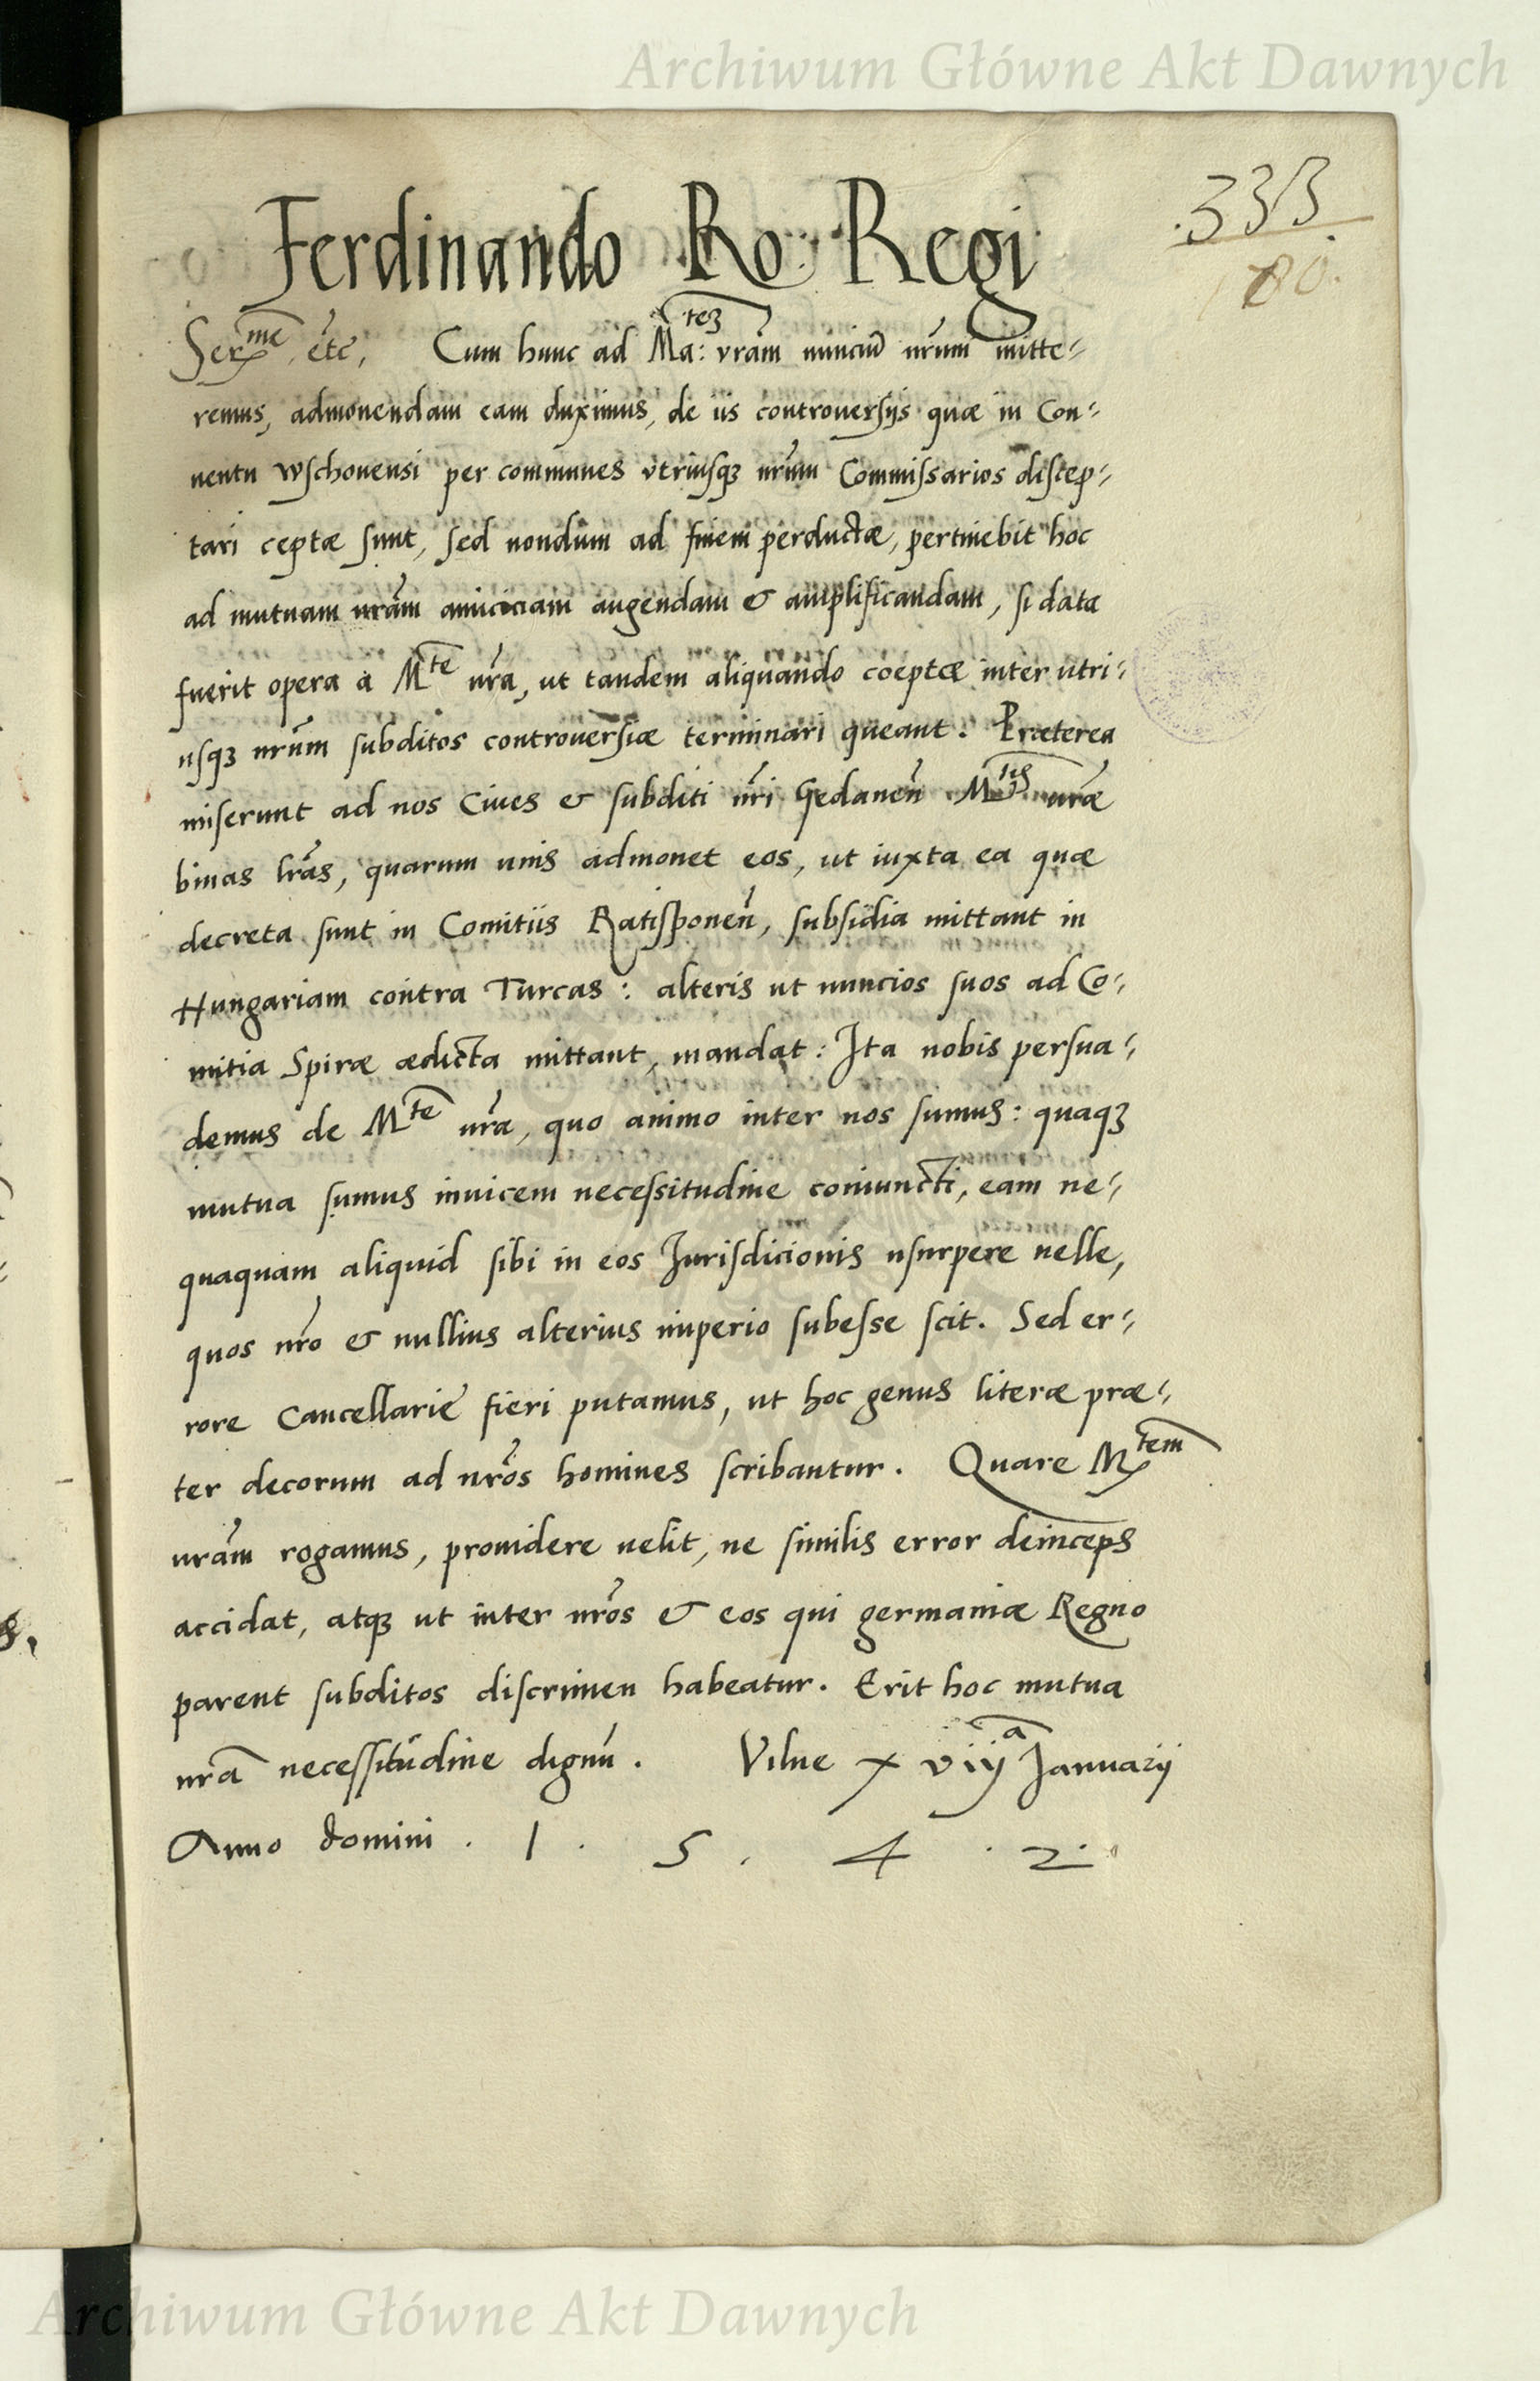 Archiwum Główne Akt Dawnych
333
180.
Ferdinando Ro: Regi
Ser^me etc, Cum hunc ad Ma:^tez vrãm nunciũ nrũm mitte-
remus, admonendam eam duximus, de iis controuersijs quæ in Con-
uentu Wschouensi per communes vtriusqȝ nrũm Commissarios discep-
tari ceptæ sunt, sed nondum ad finem perductæ, pertinebit hoc
ad mutuam nrãm amiciciam augendam & amplificandam, si data
fuerit opera à M^te vrã, ut tandem aliquando coeptæ inter utri-
usqȝ nrũm subditos controuersiæ terminari queant. Præterea
miserunt ad nos Ciues & subditi nrĩ Gedaneñ M^tis vrãe
binas lrãs, quarum unis admonet eos, ut iuxta ea quæ
decreta sunt in Comitiis Ratisponeñ, subsidia mittant in
Hungariam contra Turcas: alteris ut nuncios suos ad Co-
mitia Spiræ ædicta mittant, mandat: Ita nobis persua-
demus de M^te vrã, quo animo inter nos sumus: quaqȝ
mutua sumus inuicem necessitudine coniuncti, eam ne-
quaquam aliquid sibi in eos Jurisdicionis usurpere uelle,
quos nrõ & nullius alterius imperio subesse scit. Sed er-
rore Cancellarie fieri putamus, ut hoc genus literæ præ-
ter decorum ad nrõs homines scribantur. Quare M^tem
vrãm rogamus, prouidere uelit, ne similis error deinceps
accidat, atqȝ ut inter nrõs & eos qui germaniæ Regno
parent subditos discrimen habeatur. Erit hoc mutua
nrã necessitudine dignũ. Vilne x vij^a Januarij
Anno domini . 1 . 5 . 4 . 2 .
Archiwum Główne Akt Dawnych